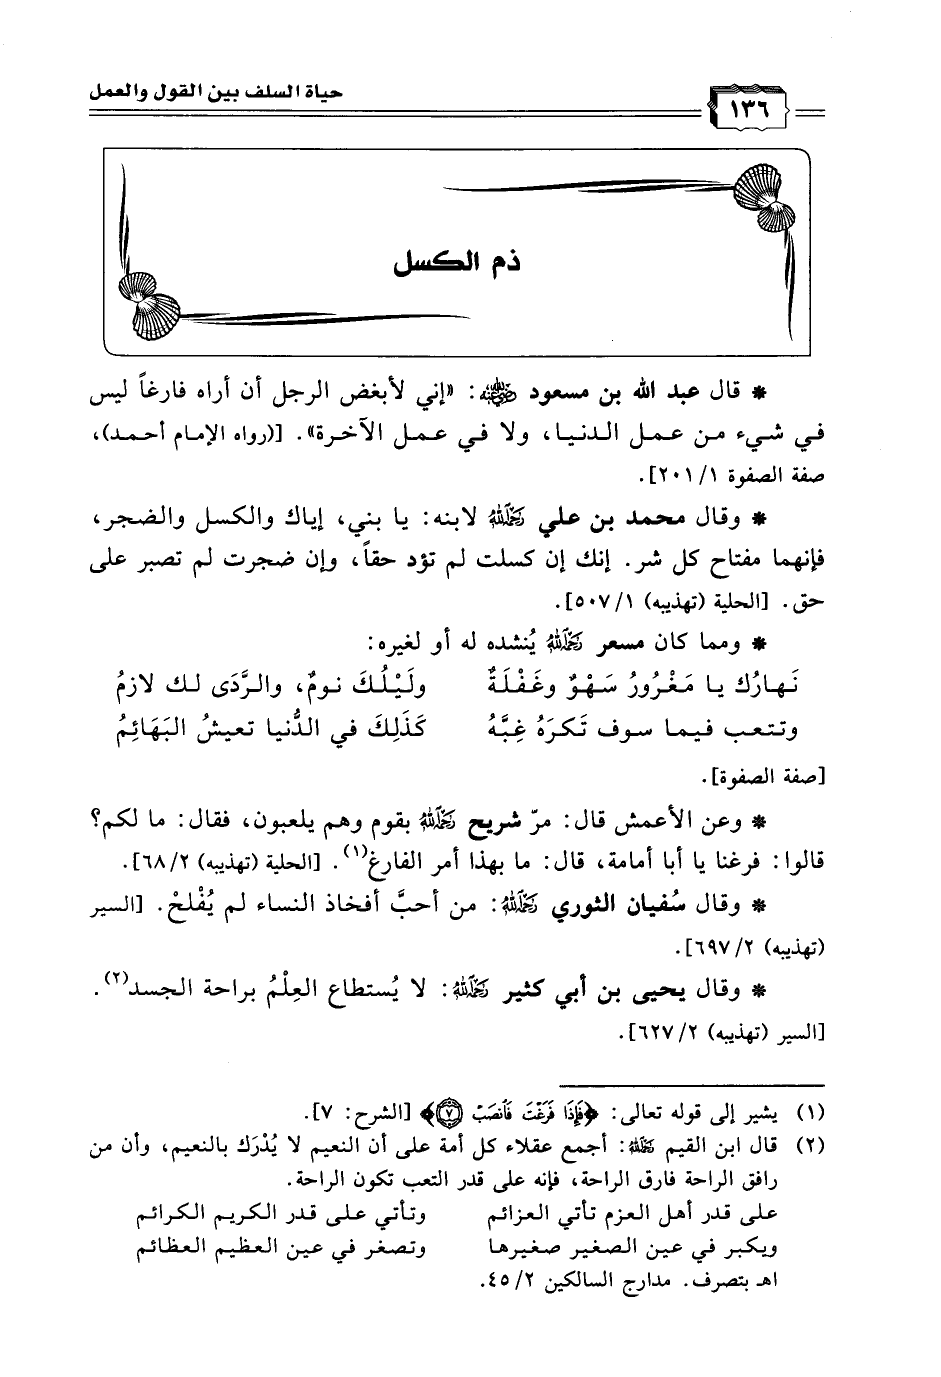 حياة السلف بين القول والعمل
١٣٦
ذم الكسل
* قال عبد الله بن مسعود رضي الله عنه: «إني لأبغض الرجل أن أراه فارغاً ليس
في شيء من عمل الدنيا، ولا في عمل الآخرة». [(رواه الإمام أحمد)،
صفة الصفوة ٢٠١/١].
* وقال محمد بن علي رحمه الله لابنه: يا بني، إياك والكسل والضجر،
فإنهما مفتاح كل شر. إنك إن كسلت لم تؤد حقاً، وإن ضجرت لم تصبر على
حق. [الحلية (تهذيبه) ٥٠٧/١].
* ومما كان مسعر رحمه الله يُنشده له أو لغيره:
نَهارُك يا مَغْرُورُ سَهْوٌ وغَفْلَةٌ ولَيْلُكَ نومٌ، والرَّدَى لك لازمُ
وتتعب فيما سوف تَكرَهُ غِبَّهُ كَذَلِكَ في الدُّنيا تعيشُ البَهَائِمُ
[صفة الصفوة].
* وعن الأعمش قال: مرّ شريح رحمه الله بقوم وهم يلعبون، فقال: ما لكم؟
قالوا: فرغنا يا أبا أمامة، قال: ما بهذا أمر الفارغ(١). [الحلية (تهذيبه) ٦٨/٢].
* وقال سُفيان الثوري رحمه الله: من أحبَّ أفخاذ النساء لم يُفْلحْ. [السير
(تهذيبه) ٦٩٧/٢].
* وقال يحيى بن أبي كثير رحمه الله: لا يُستطاع العِلْمُ براحة الجسد(٢).
[السير (تهذيبه) ٦٢٧/٢].
(١) يشير إلى قوله تعالى: ﴿فَإِذَا فَرَغْتَ فَانصَبْ ٧﴾ [الشرح: ٧].
(٢) قال ابن القيم رحمه الله: أجمع عقلاء كل أمة على أن النعيم لا يُدْرَك بالنعيم، وأن من
رافق الراحة فارق الراحة، فإنه على قدر التعب تكون الراحة.
على قدر أهل العزم تأتي العزائم وتأتي على قدر الكريم الكرائم
ويكبر في عين الصغير صغيرها وتصغر في عين العظيم العظائم
اهـ بتصرف. مدارج السالكين ٤٥/٢.